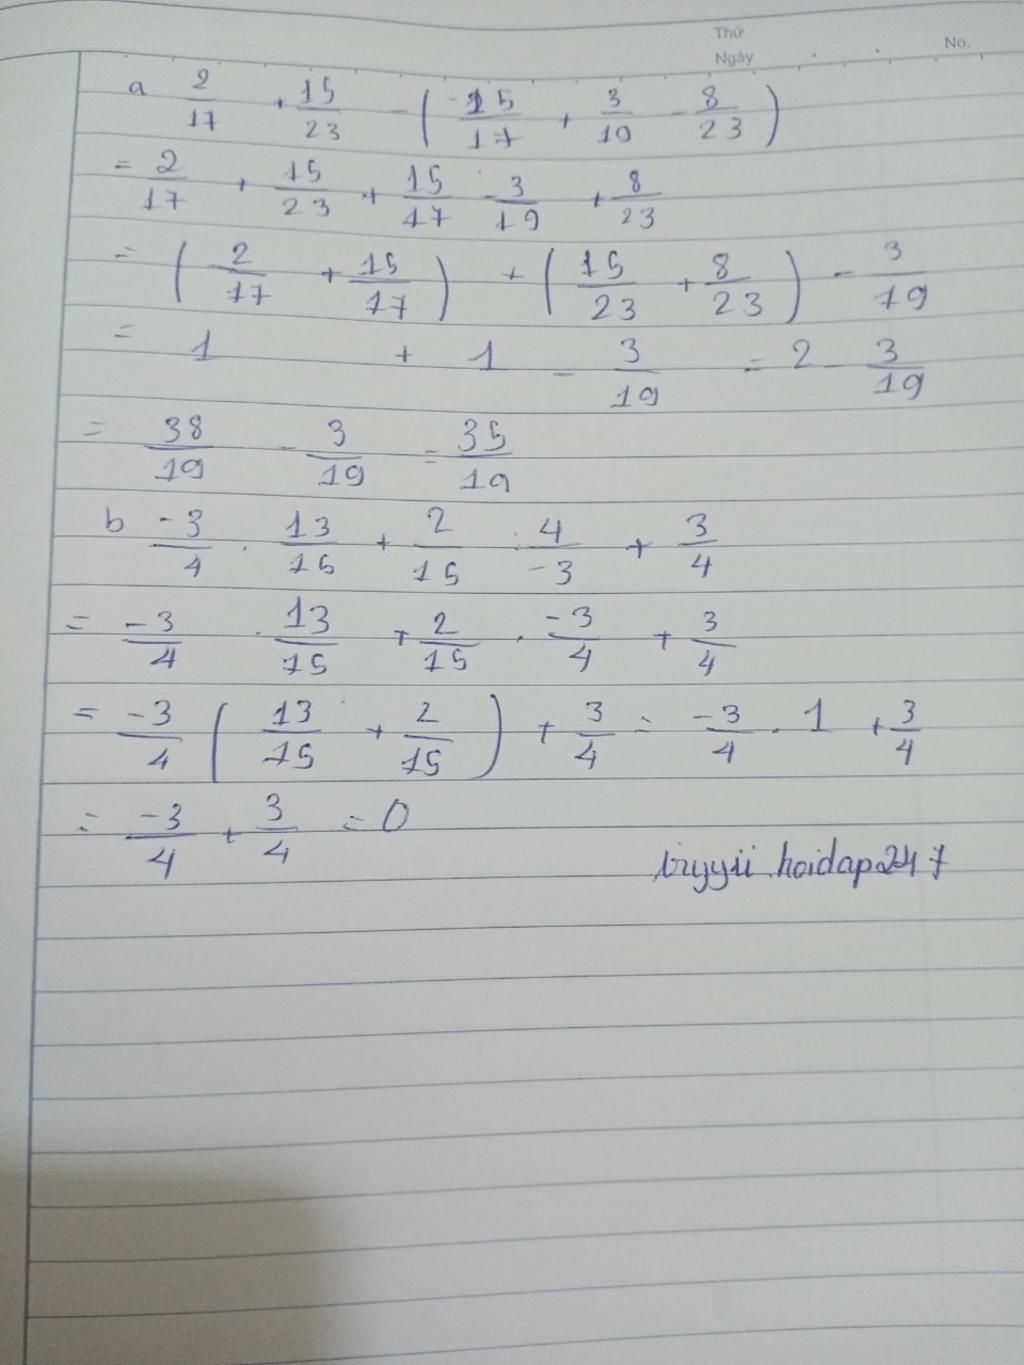 Thứ
Ngày No.
a 2/17 + 15/23 - ( -15/17 + 3/10 - 8/23 )
= 2/17 + 15/23 + 15/17 - 3/19 + 8/23
= ( 2/17 + 15/17 ) + ( 15/23 + 8/23 ) - 3/19
= 1 + 1 - 3/19 = 2 - 3/19
= 38/19 - 3/19 = 35/19
b -3/4 . 13/15 + 2/15 : 4/-3 + 3/4
= -3/4 . 13/15 + 2/15 . -3/4 + 3/4
= -3/4 ( 13/15 + 2/15 ) + 3/4 = -3/4 . 1 + 3/4
= -3/4 + 3/4 = 0
hoidap247